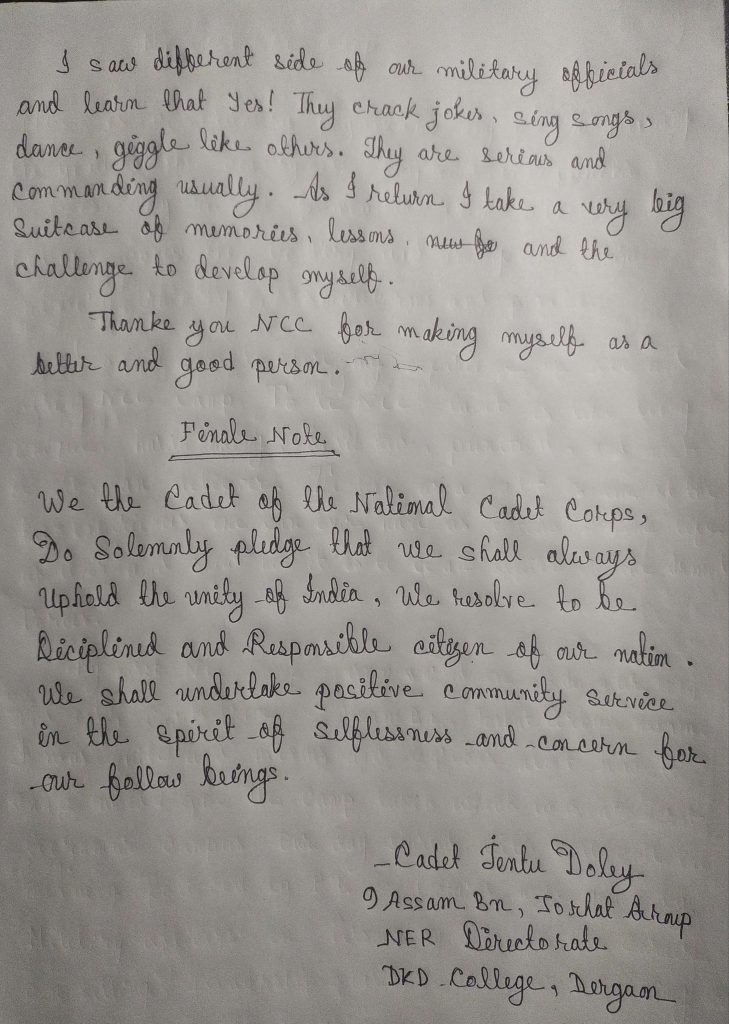 I saw different side of our military officials
and learn that Yes! They crack jokes, sing songs,
dance, giggle like others. They are serious and
Commanding usually. As I return I take a very big
Suitcase of memories, lessons, and the
challenge to develop myself.
Thanke you NCC for making myself as a
better and good person.
Finale Note
We the Cadet of the National Cadet Corps,
Do Solemnly pledge that we shall always
Uphold the unity of India, We resolve to be
Diciplined and Responsible citizen of our nation.
We shall undertake positive community Service
in the spirit of Selflessness and concern for
our follow beings.
-Cadet Jentu Doley
9 Assam Bn, Jorhat Group
NER Directorate
DKD College, Dergaon